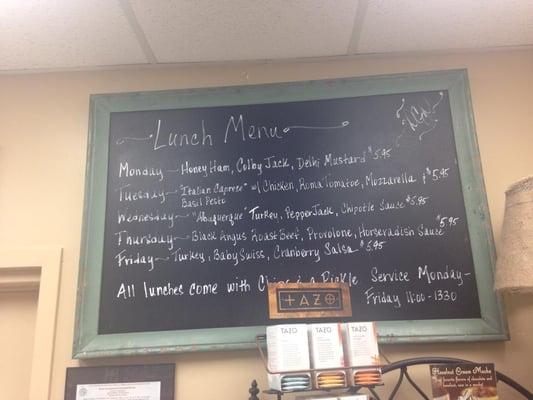 Lunch Menu
Monday - Honey Ham, Colby Jack, Delhi Mustard $5.95
Tuesday - "Italian Caprese" w/ Chicken, Roma Tomatoe, Mozzarella $5.95
Basil Pesto
Wednesday - "Albuquerque" Turkey, PepperJack, Chipotle Sauce $5.95
Thursday - Black Angus Roast Beef, Provolone, Horseradish Sauce $5.95
Friday - Turkey, Baby Swiss, Cranberry Salsa $5.95
All lunches come with Chips & a Pickle
Service Monday -
Friday 11:00 - 1330
TAZO
TAZO TAZO TAZO
Hazelnut Cream Mocha